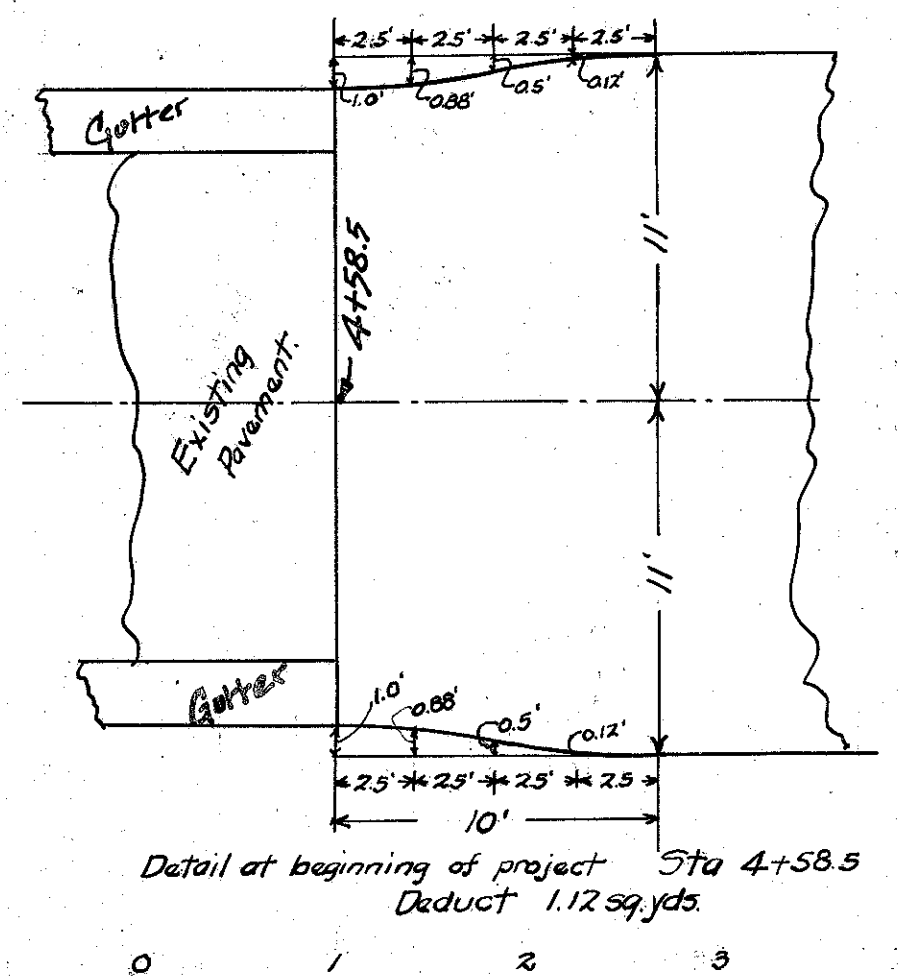 2.5' 2.5' 2.5' 2.5'
1.0' 0.88' 0.5' 0.12'
Gutter
11'
4+58.5
Existing
Pavement.
11'
Gutter
1.0' 0.88' 0.5' 0.12'
2.5' 2.5' 2.5' 2.5
10'
Detail at beginning of project Sta 4+58.5
Deduct 1.12 sq.yds.
0 1 2 3